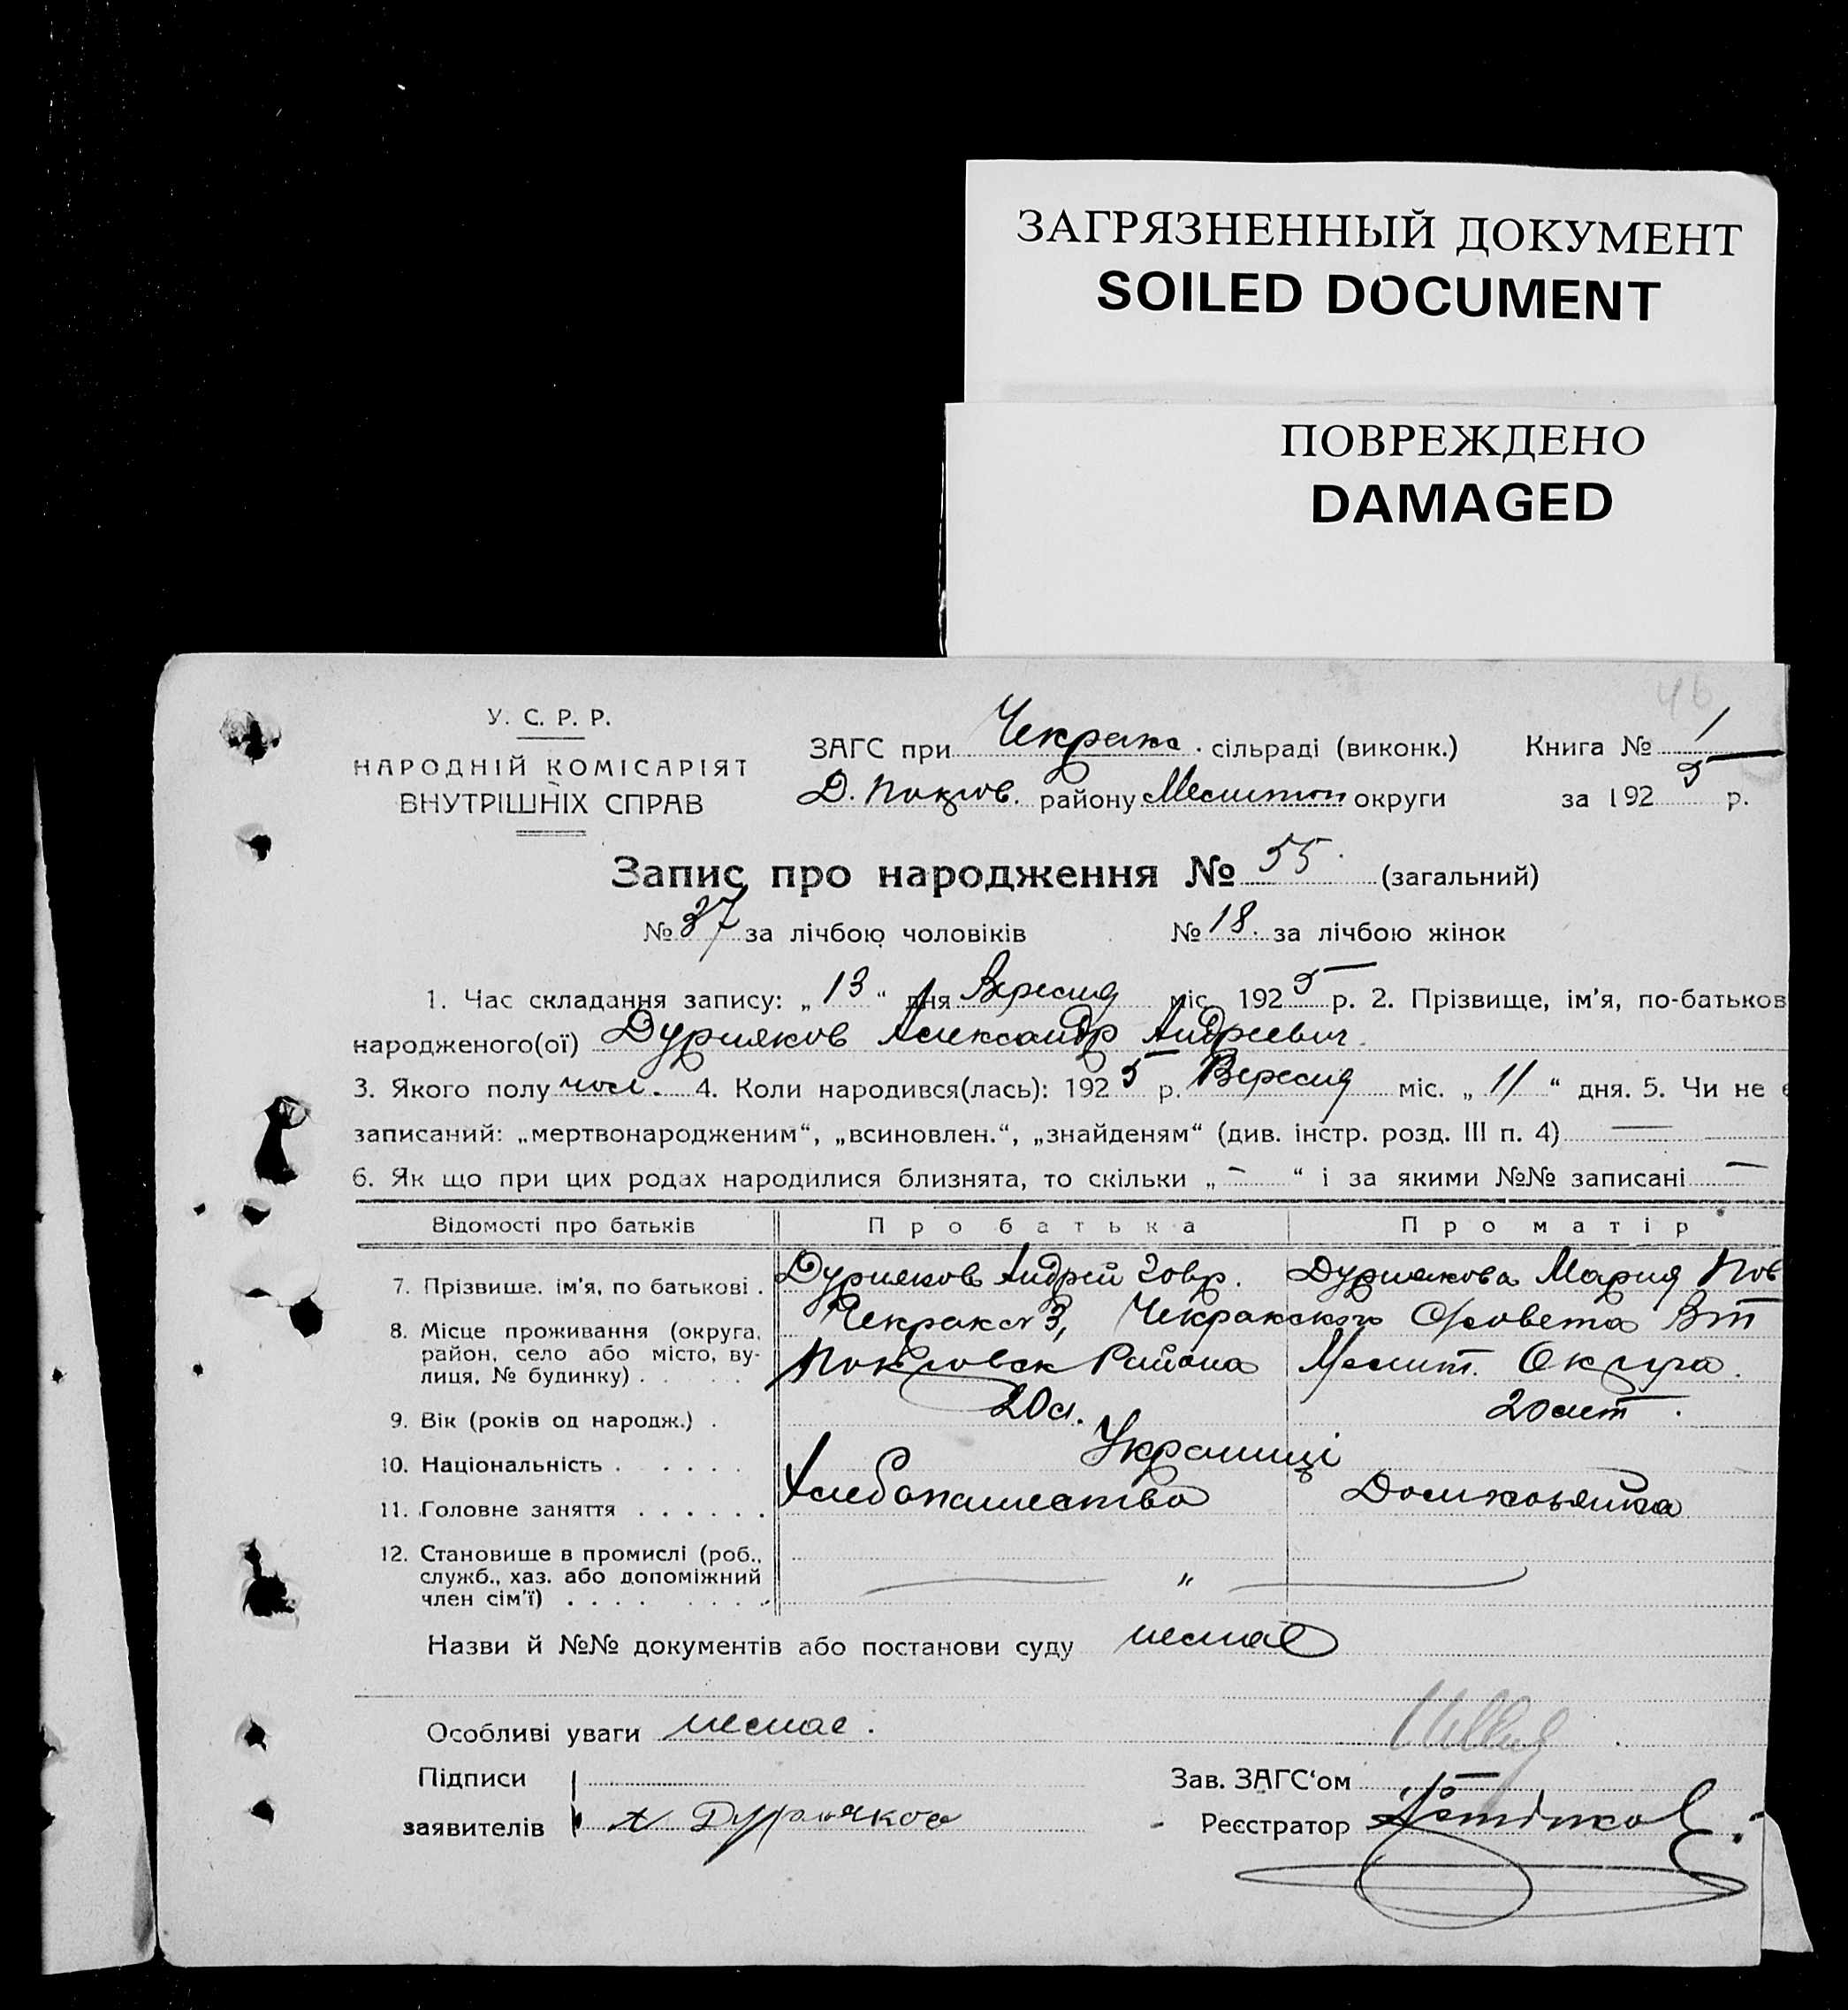 ЗАГРЯЗНЕННЫЙ ДОКУМЕНТ
SOILED DOCUMENT
ПОВРЕЖДЕНО
DAMAGED
46
У. С. Р. Р.
НАРОДНІЙ КОМІСАРІЯТ
ВНУТРІШНІХ СПРАВ
ЗАГС при Чекрак. сільраді (виконк.) Книга № 1
району Мелитоп округи за 1925 р.
Запис про народження № 55. (загальний)
№ 37 за лічбою чоловіків № 18. за лічбою жінок
1. Час складання запису: „13“ дня Вересня міс. 1925 р. 2. Прізвище, ім’я, по-батьков
народженого(ої) Дурняков Александр Андреевич.
3. Якого полу чол. 4. Коли народився(лась): 1925 р. Вересня міс. „11“ дня. 5. Чи не є
записаний: „мертвонародженим“, „всиновлен.“, „знайденям“ (див. інстр. розд. III п. 4) —
6. Як що при цих родах народилися близнята, то скільки „—“ і за якими №№ записані —
Відомості про батьків Про батька Про матір
7. Прізвище, ім’я, по батькові . Дурняков Андрей Дурнякова Мария
8. Місце проживання (округа, район, село або місто, вулиця, № будинку) . Чекрак № 3, Чекракского С/совета
Района Мелит. Округа.
9. Вік (років од народж.) . 20 л. 20 лет.
10. Національність . Украинці
11. Головне заняття . Хлебопашество Домохозяйка
12. Становище в промислі (роб.,
служб., хаз. або допоміжний
член сім’ї) . — „ —
Назви й №№ документів або постанови суду немає
Особливі уваги немає.
Підписи Зав. ЗАГС‘ом
заявителів А Дурняков Реєстратор